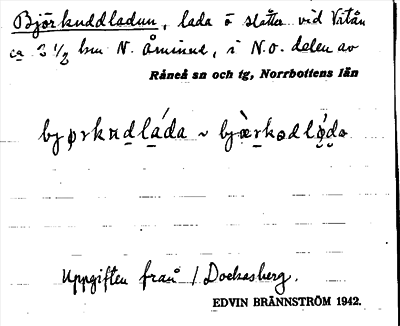 Björknddladun, lada å slåtter vid Vitån
ca 3 1/2 km N. Åminne, i N.O. delen av
Råneå sn och tg, Norrbottens län
bjørknd̲lá̲da ~ bjæ̀rkədlǫ́də
Uppgiften från / Dockasberg.
EDVIN BRÄNNSTRÖM 1942.